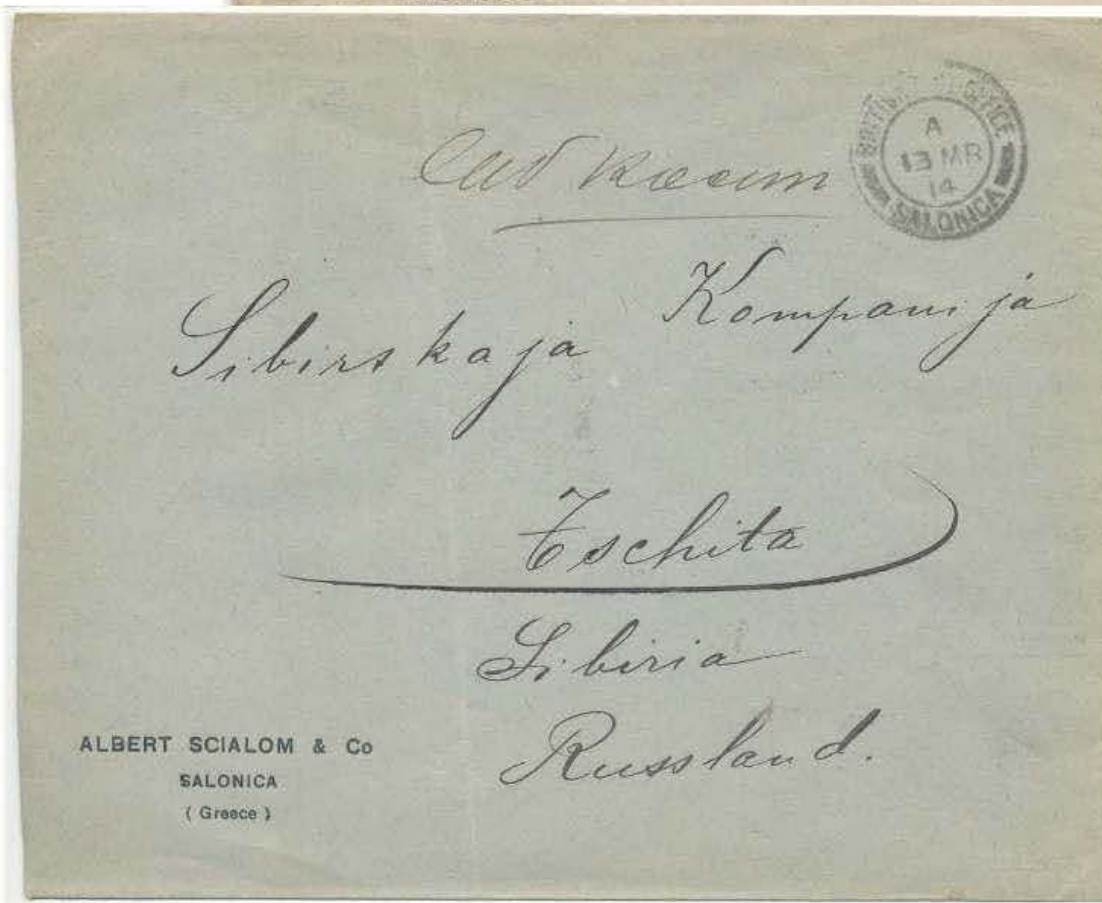 BRITISH OFFICE
A
13 MR
14
SALONICA
Sibirskaja Kompanija
Tschita
Sibiria
Russland.
ALBERT SCIALOM & Co
SALONICA
( Greece )